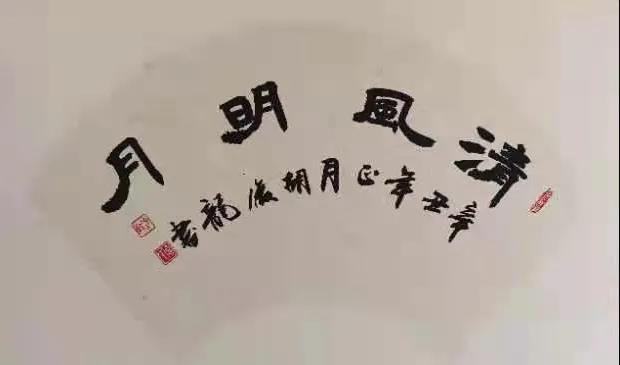 清風明月
辛丑年正月胡俊龍書